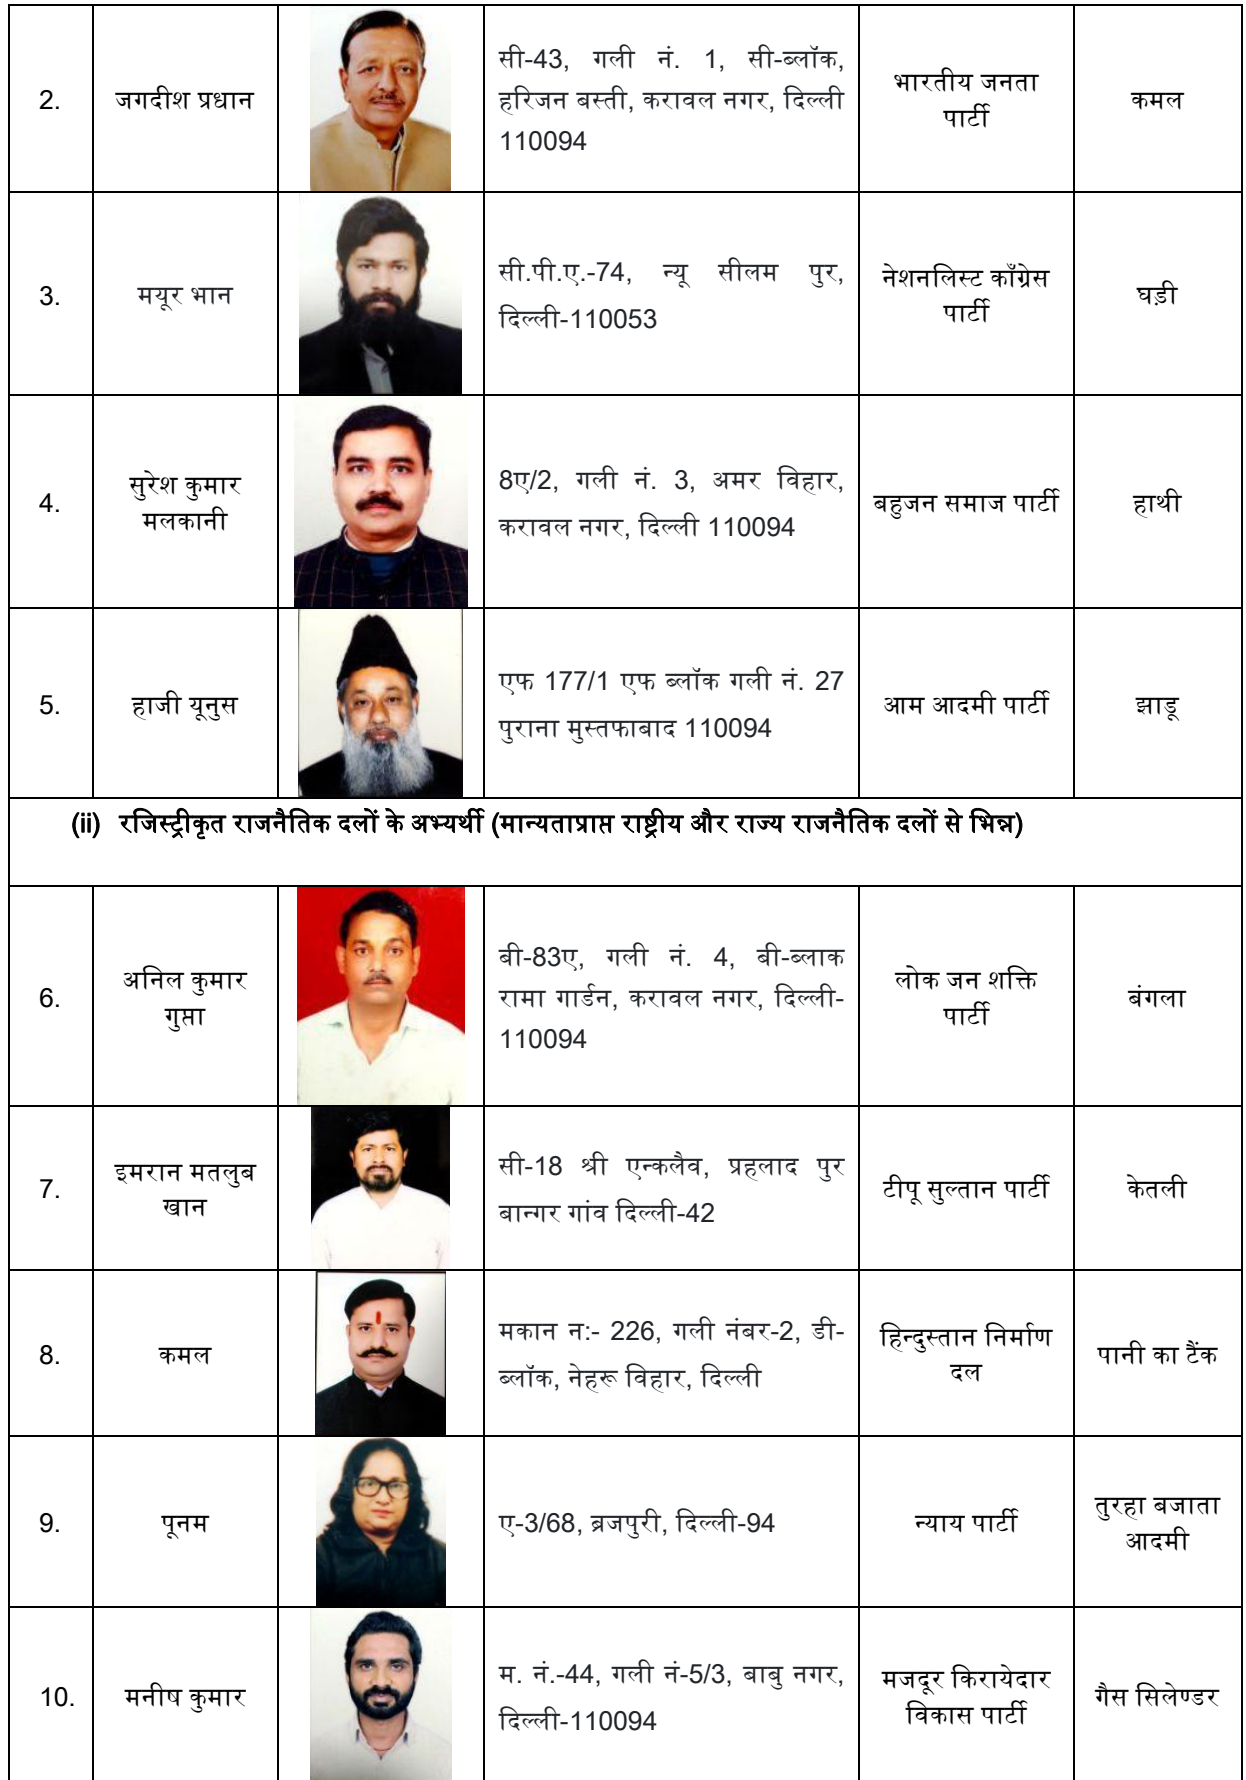 2.
जगदीश प्रधान
सी-43, गली नं. 1, सी-ब्लॉक,
हरिजन बस्ती, करावल नगर, दिल्ली
110094
भारतीय जनता
पार्टी
कमल
3.
मयूर भान
सी.पी.ए.-74, न्यू सीलम पुर,
दिल्ली-110053
नेशनलिस्ट काँग्रेस
पार्टी
घड़ी
4.
सुरेश कुमार
मलकानी
8ए/2, गली नं. 3, अमर विहार,
करावल नगर, दिल्ली 110094
बहुजन समाज पार्टी
हाथी
5.
हाजी यूनुस
एफ 177/1 एफ ब्लॉक गली नं. 27
पुराना मुस्तफाबाद 110094
आम आदमी पार्टी
झाडू
(ii) रजिस्ट्रीकृत राजनैतिक दलों के अभ्यर्थी (मान्यताप्राप्त राष्ट्रीय और राज्य राजनैतिक दलों से भिन्न)
6.
अनिल कुमार
गुप्ता
बी-83ए, गली नं. 4, बी-ब्लाक
रामा गार्डन, करावल नगर, दिल्ली-
110094
लोक जन शक्ति
पार्टी
बंगला
7.
इमरान मतलुब
खान
सी-18 श्री एन्कलैव, प्रहलाद पुर
बान्गर गांव दिल्ली-42
टीपू सुल्तान पार्टी
केतली
8.
कमल
मकान न:- 226, गली नंबर-2, डी-
ब्लॉक, नेहरू विहार, दिल्ली
हिन्दुस्तान निर्माण
दल
पानी का टैंक
9.
पूनम
ए-3/68, ब्रजपुरी, दिल्ली-94
न्याय पार्टी
तुरहा बजाता
आदमी
10.
मनीष कुमार
म. नं.-44, गली नं-5/3, बाबु नगर,
दिल्ली-110094
मजदूर किरायेदार
विकास पार्टी
गैस सिलेण्डर